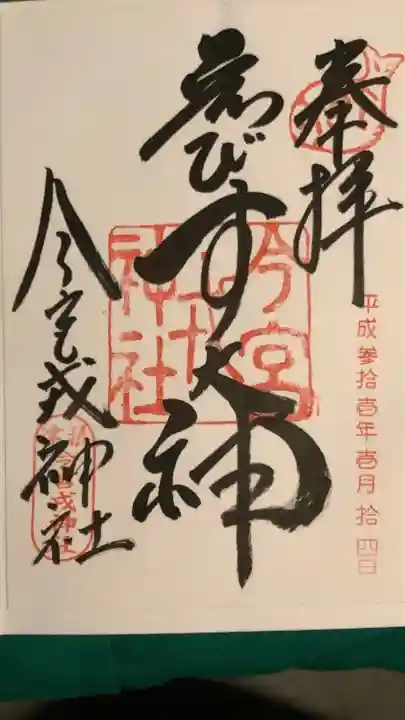 奉拝
平成参拾壱年壱月拾四日
ゑびす大神
今宮戎神社
今宮戎神社